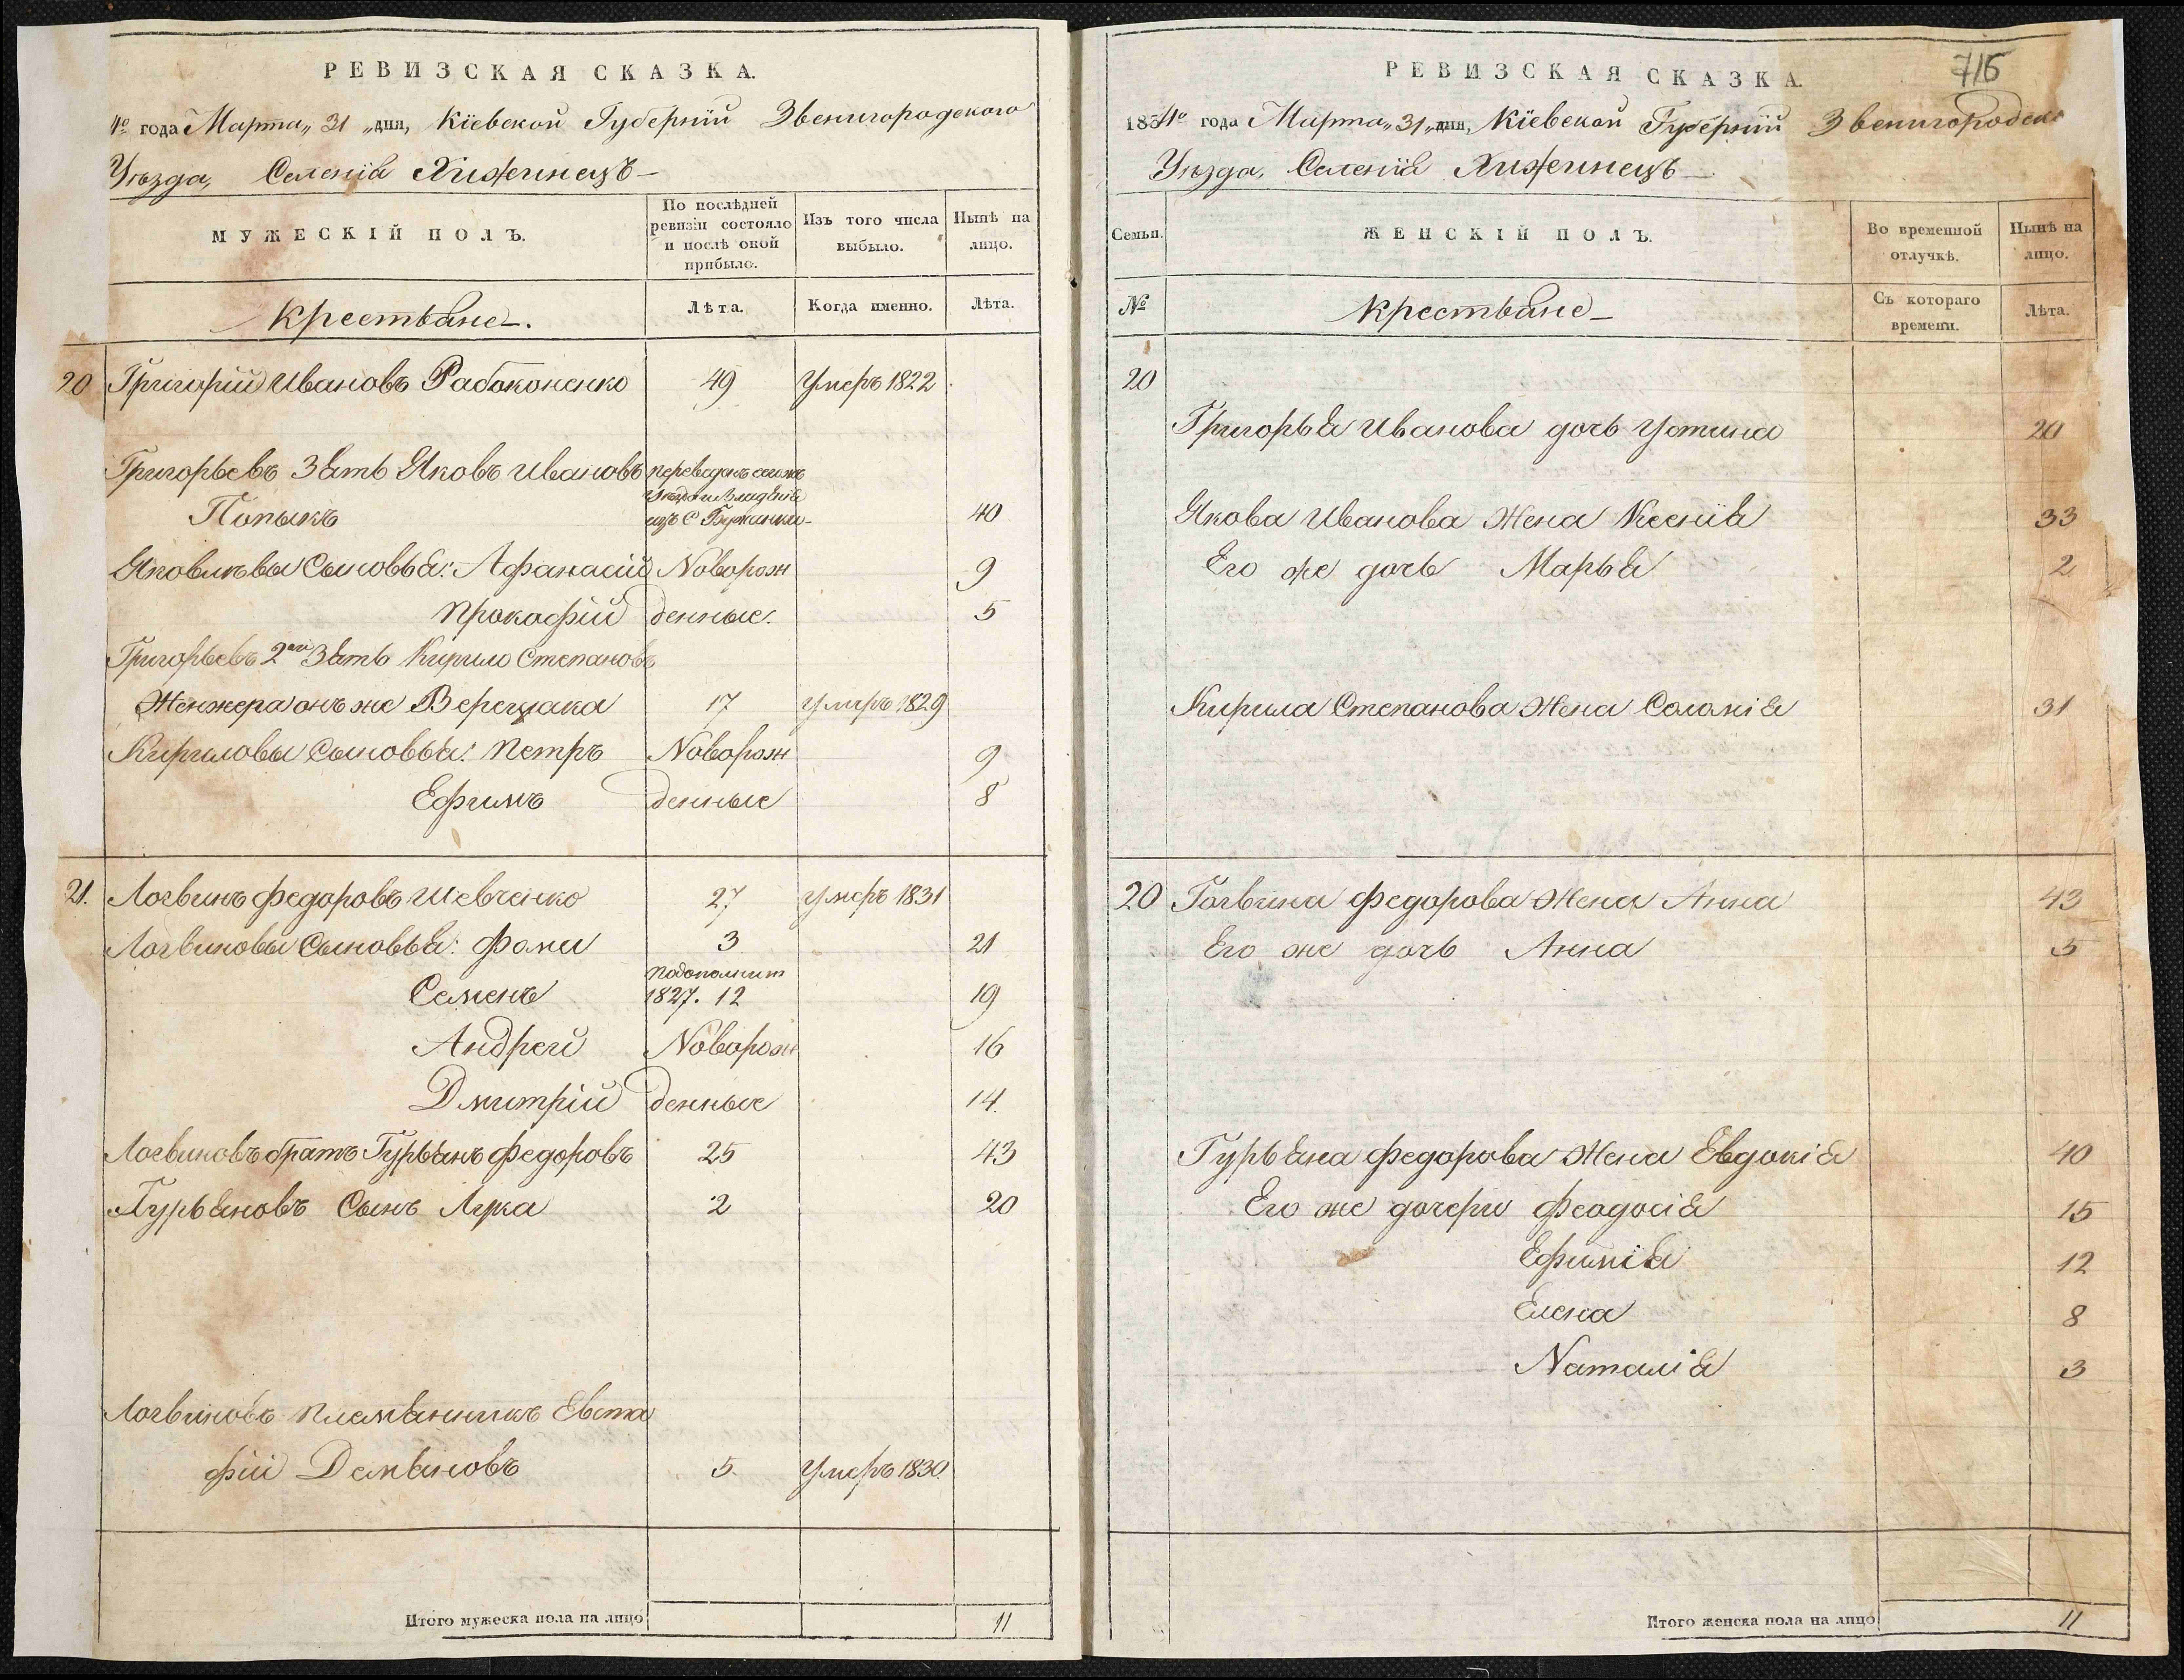 РЕВИЗСКАЯ СКАЗКА.
4го года Марта „ 31 „ дня, Кіевской Губерніи Звенигородского
Уѣзда, Селенія Хижинецъ
МУЖЕСКІЙ ПОЛЪ.
По послѣдней ревизіи состояло и послѣ оной прибыло.
Изъ того числа выбыло.
Нынѣ на лицо.
Крестьяне.
Лѣта.
Когда именно.
Лѣта.
20 Григорій Ивановъ Рабоконенко 49 Умеръ 1822
Григорьевъ Зять Яковъ Ивановъ переведенъ сегожъ
уѣзда и владѣнія
Попыкъ изъ С Бужанки 40
Яковлевы Сыновья: Афанасій Новорож 9
Прокофій денные. 5
Григорьевъ 2ой Зять Кирило Степановъ
Женжера онъ же Верещака 17 умеръ 1829
Кириловы Сыновья: Петръ Новорож 9
Ефимъ денные 8
21. Логвинъ Федоровъ Шевченко 27 умеръ 1831
Логвиновы Сыновья: Фома 3 21
Семенъ 1827. 12 19
Андрей Новорож 16
Дмитрій денные 14.
Логвиновъ братъ Гурьянъ Федоровъ 25 43
Гурьяновъ Сынъ Лука 2 20
Логвиновъ племянникъ Евста
фій Демьяновъ 5. Умеръ 1830
Итого мужеска пола на лицо 11
РЕВИЗСКАЯ СКАЗКА.
715
1834го года Марта „ 31 „ дня, Кіевской Губерніи Звенигородск
Уѣзда, Селенія Хижинецъ
Семьи.
ЖЕНСКІЙ ПОЛЪ.
Во временной отлучкѣ.
Нынѣ на лицо.
№
Крестьяне
Съ котораго времени.
Лѣта.
20
Григорья Иванова дочь Устина 20
Якова Иванова Жена Ксенія 33
Его же дочь Марья 2
Кирила Степанова Жена Соломія 31
20 Логвина Федорова Жена Анна 43
Его же дочь Анна 5
Гурьяна Федорова Жена Евдокія 40
Его же дочери Феодосія 15
Ефимія 12
Елена 8
Наталія 3
Итого женска пола на лицо 11